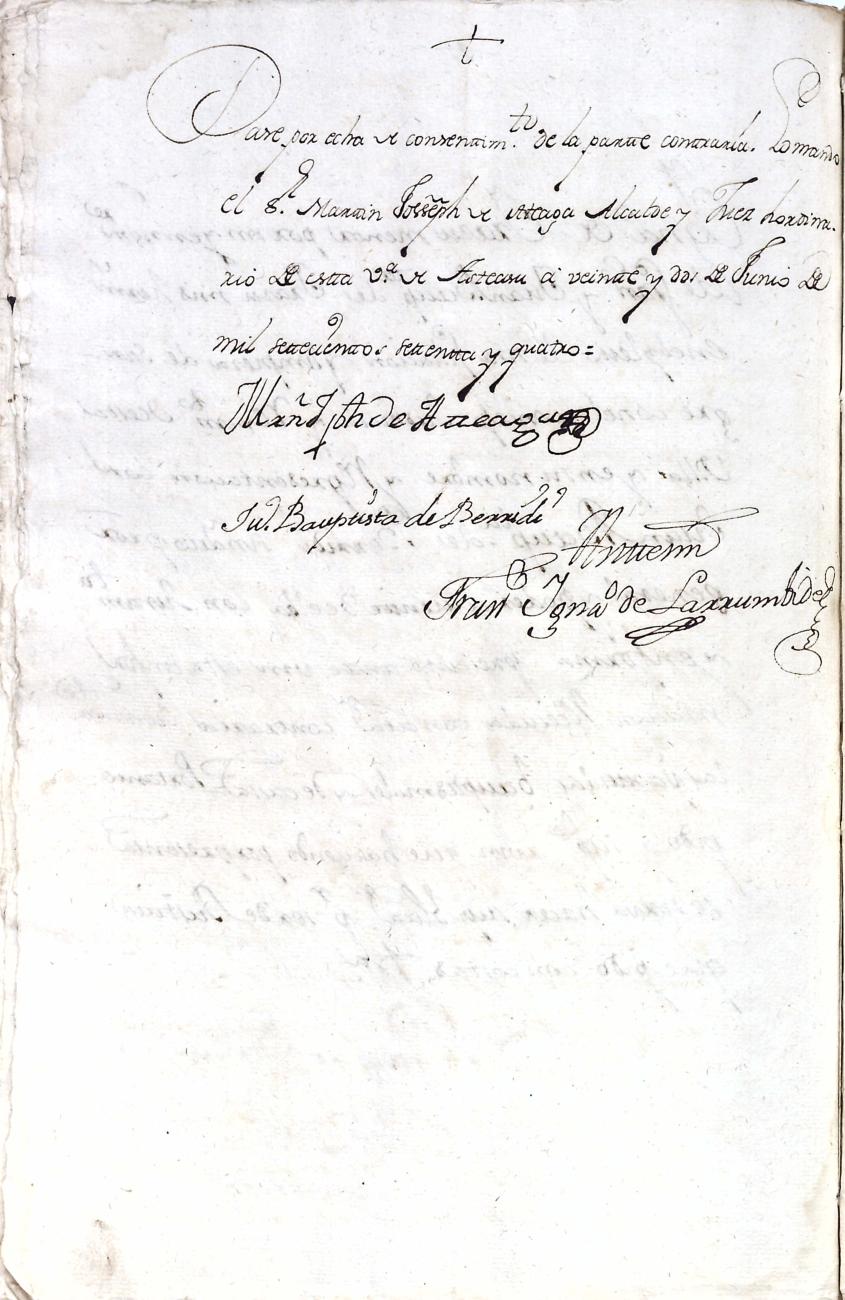 Dase por echa de consentim.to de la partte contraria. Lo mando
el S.r Martin Josseph de Atteaga Alcalde y Juez hordina-
rio de estta v.a de Asteasu a veintte y dos de Junio de
mil settecientos settentta y quatro=
Mrñ Jph de Atteaga
Ju.n Bauptista de Berridi
Anttemi
Fran.co Igna.o de Larrumbide